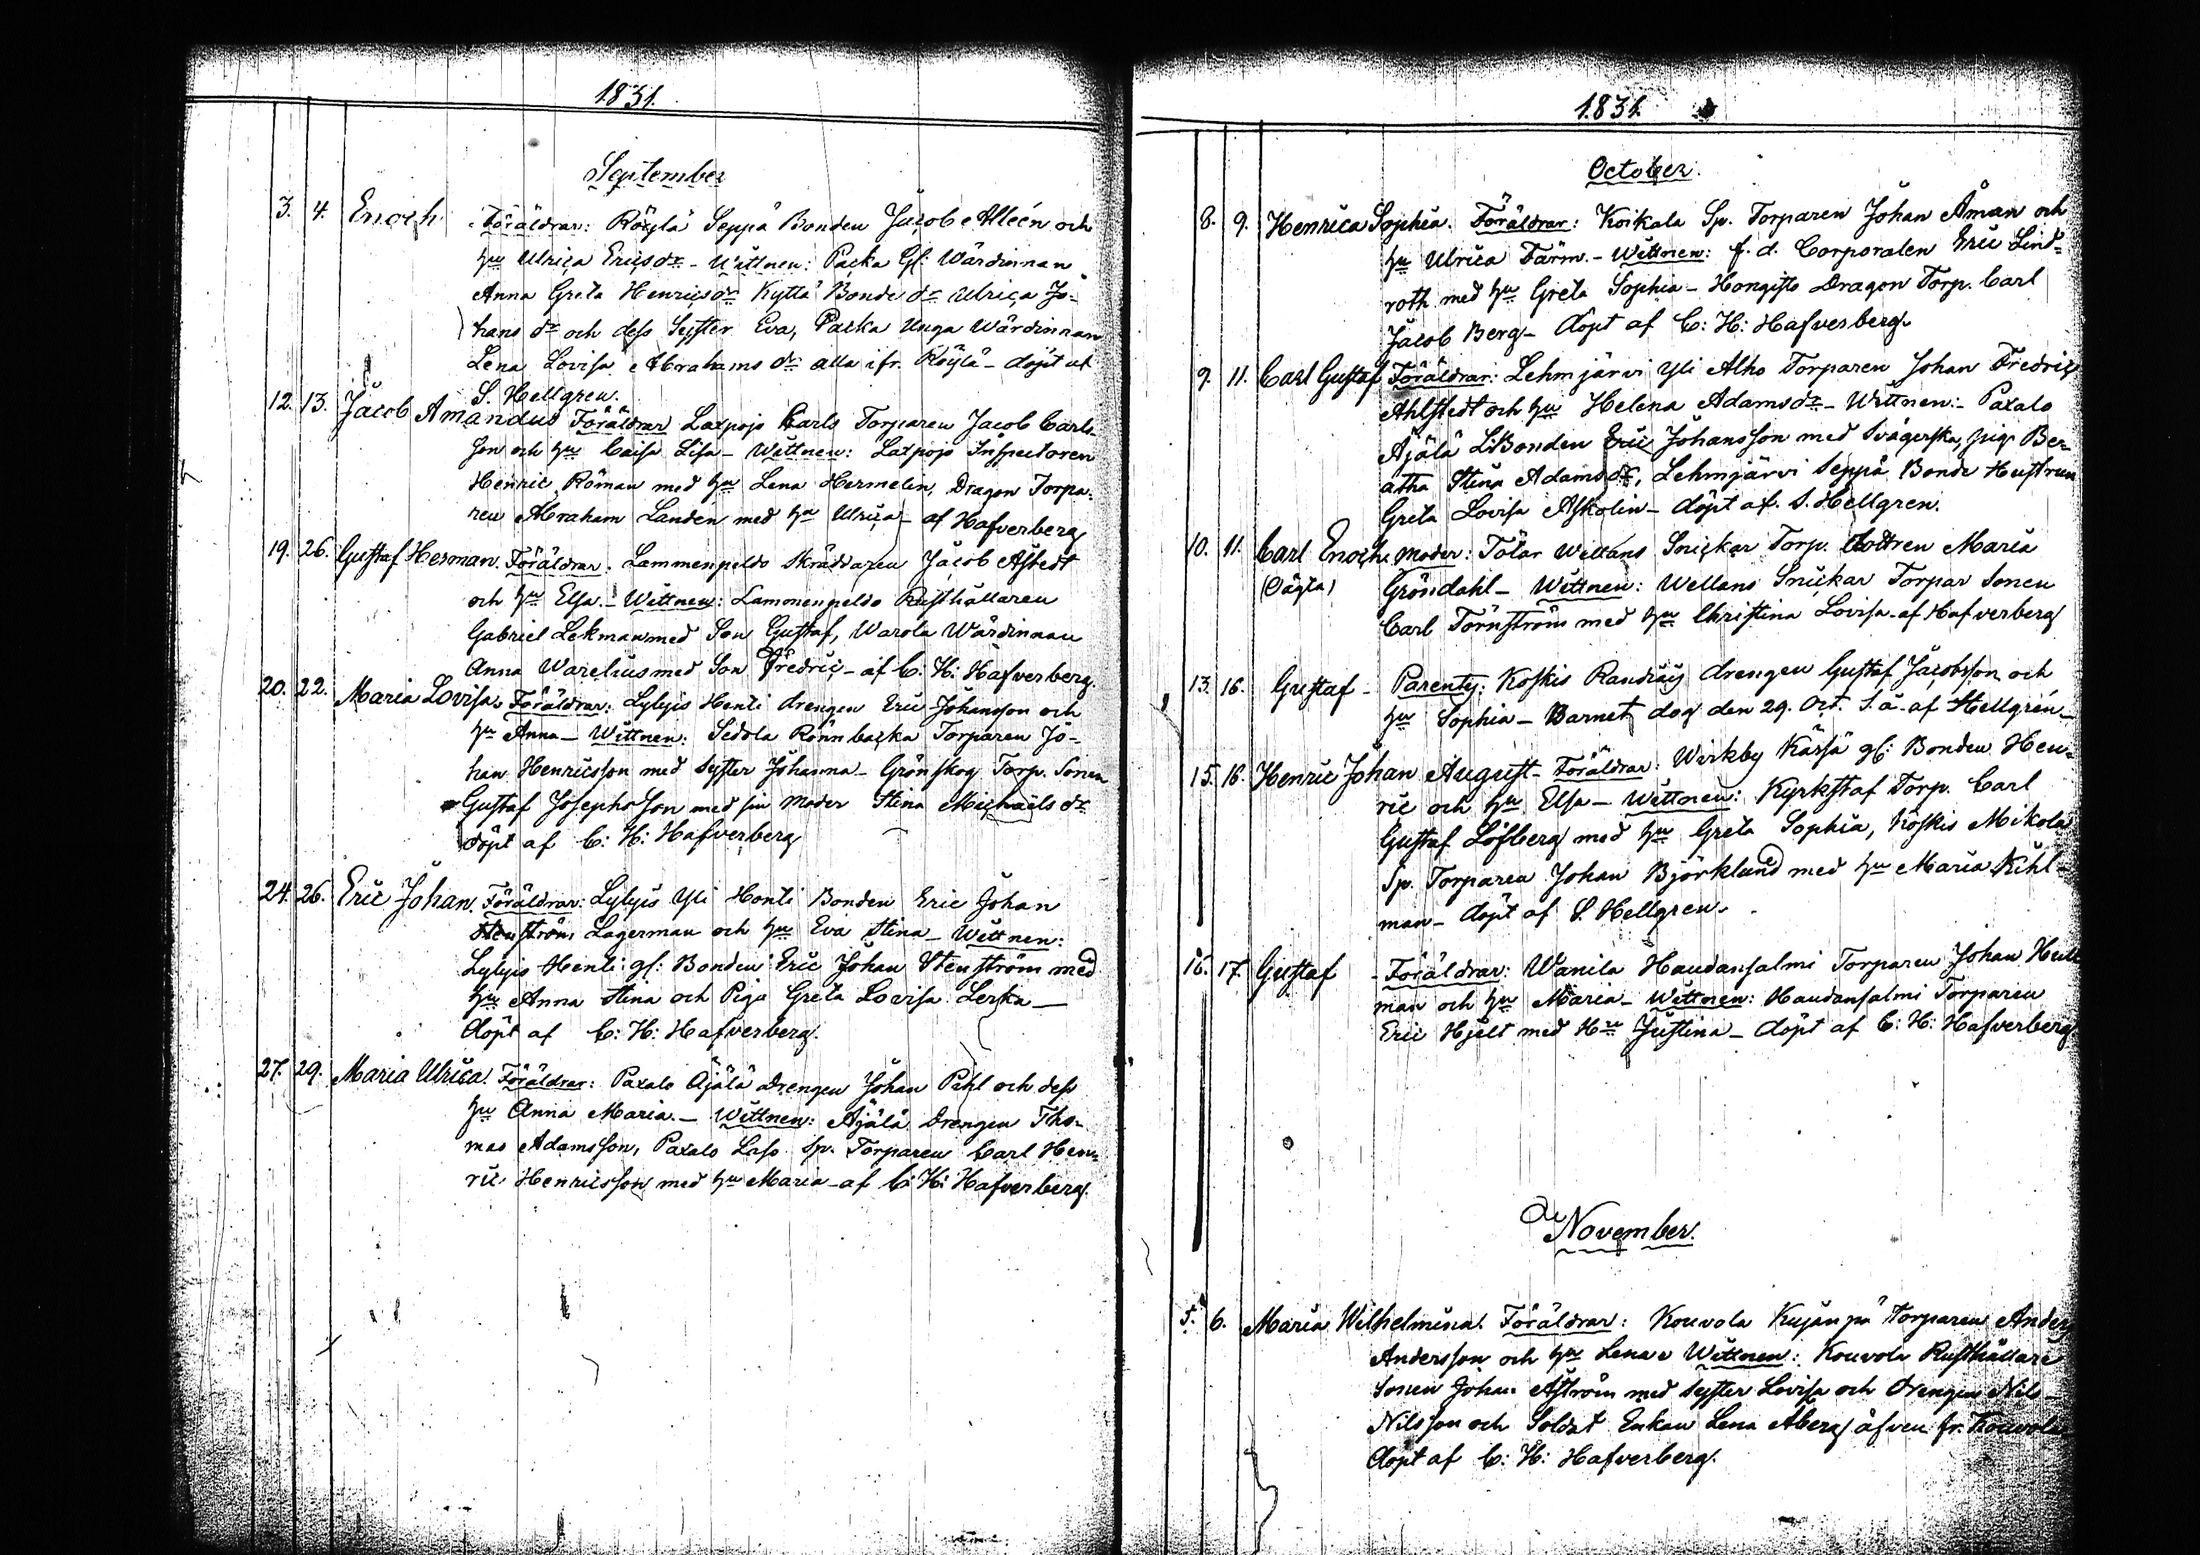 1831.
September
3. 4. Enoch Föräldrar: Röylä Seppä Bonden Jacob Alleén och
hu Ulrica Ericsdr - Wittnen: Packa Gl: Wärdinnan
Anna Greta Henricsdr Kyttä Bonde dr Ulrica Jo-
hans dr och dess Syster Eva, Packa Unga Wärdinnan
Lena Lovisa Abrahams dr alla ifr. Röylä - döpt af
S. Hellgren.
12. 13. Jacob Amandus Föräldrar Laxpojo Carls Torparen Jacob Carls-
son och hu Caisa Lisa - Wittnen: Laxpojo Inspectoren
Henric Röman med hu Lena Hermelin, Dragon Torpa-
ren Abraham Landen med hu Ulrica - af Hafverberg
19. 26. Gustaf Herman. Föräldrar: Lammenpeldo Skräddaren Jacob Åstedt
och hu Elsa. - Wittnen: Lamonenpeldo Rusthållaren
Gabriel Lekman med Son Gustaf, Warola Wärdinnan
Anna Warelius med Son Fredric - af C: H: Hafverberg.
20. 22. Maria Lovisa. Föräldrar: Lylyis Henti drengen Eric Johansson och
hu Anna - Wittnen: Sedola Rönnbacka Torparen Jo-
han Henricsson med Syster Johanna - Grönskog Torp. Sonen
Gustaf Josephsson med sin Moder Stina Michaels dr
döpt af C: H: Hafverberg
24. 26. Eric Johan. Föräldrar: Lylyis Yli Honti Bonden Eric Johan
Stenström Lagerman och hu Eva Stina - Wittnen:
Lylyis Henti gl: Bonden Eric Johan Stenström med
hu Anna Stina och Piga Greta Lovisa Lerka -
döpt af C: H: Hafverberg.
27. 29. Maria Ulrica. Föräldrar: Paxalo Äjälä Drengen Johan Pihl och dess
hu Anna Maria. - Wittnen: Äjälä Drengen Tho-
mas Adamsson, Paxalo Laso Sp. Torparen Carl Hen-
ric Henricsson med hu Maria - af C: H: Hafverberg.
1831.
October.
8. 9. Henrica Sophia. Föräldrar: Koikala Sp. Torparen Johan Åman och
hu Ulrica Färm. - Wittnen: f. d. Corporalen Eric Lind-
roth med hu Greta Sophia - Hongisto Dragon Torp. Carl
Jacob Berg - döpt af C: H: Hafverberg.
9. 11. Carl Gustaf Föräldrar: Lehmjärvi Yli Alho Torparen Johan Fredric
Ahlstedt och hu Helena Adamsdr - Wittnen: - Paxalo
Äjälä Bonden Eric Johansson med Svägerska, pig. Ber-
atha Stina Adamsdr, Lehmjärvi Seppä Bonde Hustrun
Greta Lovisa Askolin - döpt af S. Hellgren.
10. 11. Carl Enoch. Moder: Tötar Wellans Snickar Torp. dottren Maria
(Oägta) Gröndahl - Wittnen: Wellans Snickar Torpar Sonen
Carl Törnström med hu Christina Lovisa - af Hafverberg
13. 16. Gustaf - Parentes: Koskis drengen Gustaf Jacobsson och
hu Sophia - Barnet dog den 29. Oct. S. å. - af Hellgrén -
15. 16. Henric Johan August - Föräldrar: Wirkby Kässä gl: Bonden Hen-
ric och hu Elsa - Wittnen: Kyrkstaf Torp. Carl
Gustaf Löfberg med hu Greta Sophia, Koskis Mikola
Sp. Torparen Johan Björklund med hu Maria Kihl-
man - döpt af S. Hellgren.
16. 17. Gustaf - Föräldrar: Wanila Haudansalmi Torparen Johan
man och hu Maria - Wittnen: Haudansalmi Torparen
Eric Hjelt med Hu Justina - döpt af C: H: Hafverberg
November.
5. 6. Maria Wilhelmina. Föräldrar: Kouvola Kujanpä Torparen Anders
Andersson och hu Lena Wittnen: Kouvola Rusthållare
Sonen Johan Åström med Syster Lovisa och Drengen Nils
Nilsson och Soldat Enkan Lena Åberg äfven fr. Kouvola
döpt af C: H: Hafverberg.